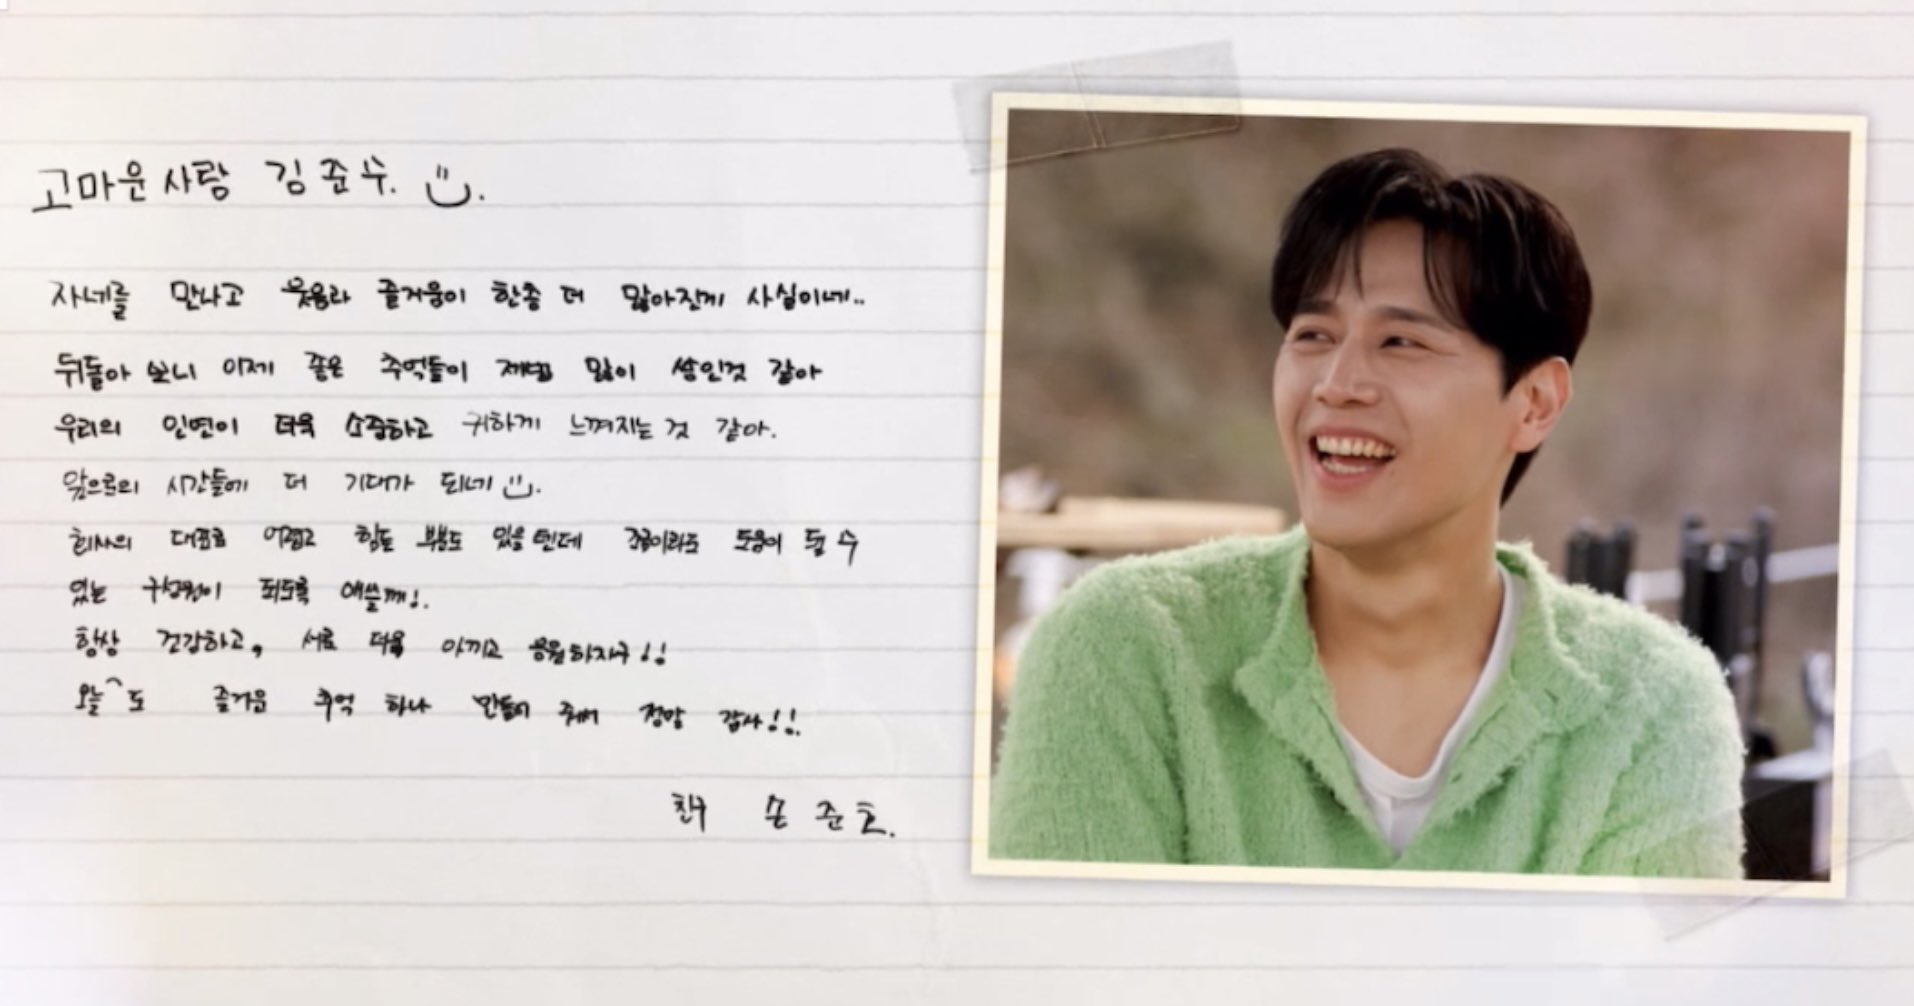 고마운 사람 김준수.
자네를 만나고 웃음과 즐거움이 한층 더 많아진게 사실이네..
뒤돌아 보니 이제 좋은 추억들이 제법 많이 쌓인것 같아
우리의 인연이 더욱 소중하고 귀하게 느껴지는 것 같아.
앞으로의 시간들에 더 기대가 되네
회사의 대표로 어렵고 힘든 부분도 있을텐데 조금이라도 도움이 될 수
있는 구성원이 되도록 애쓸께!.
항상 건강하고, 서로 더욱 아끼고 응원하자구!!
오늘도 즐거운 추억 하나 만들어 줘서 정말 감사!!.
친구 손준호.